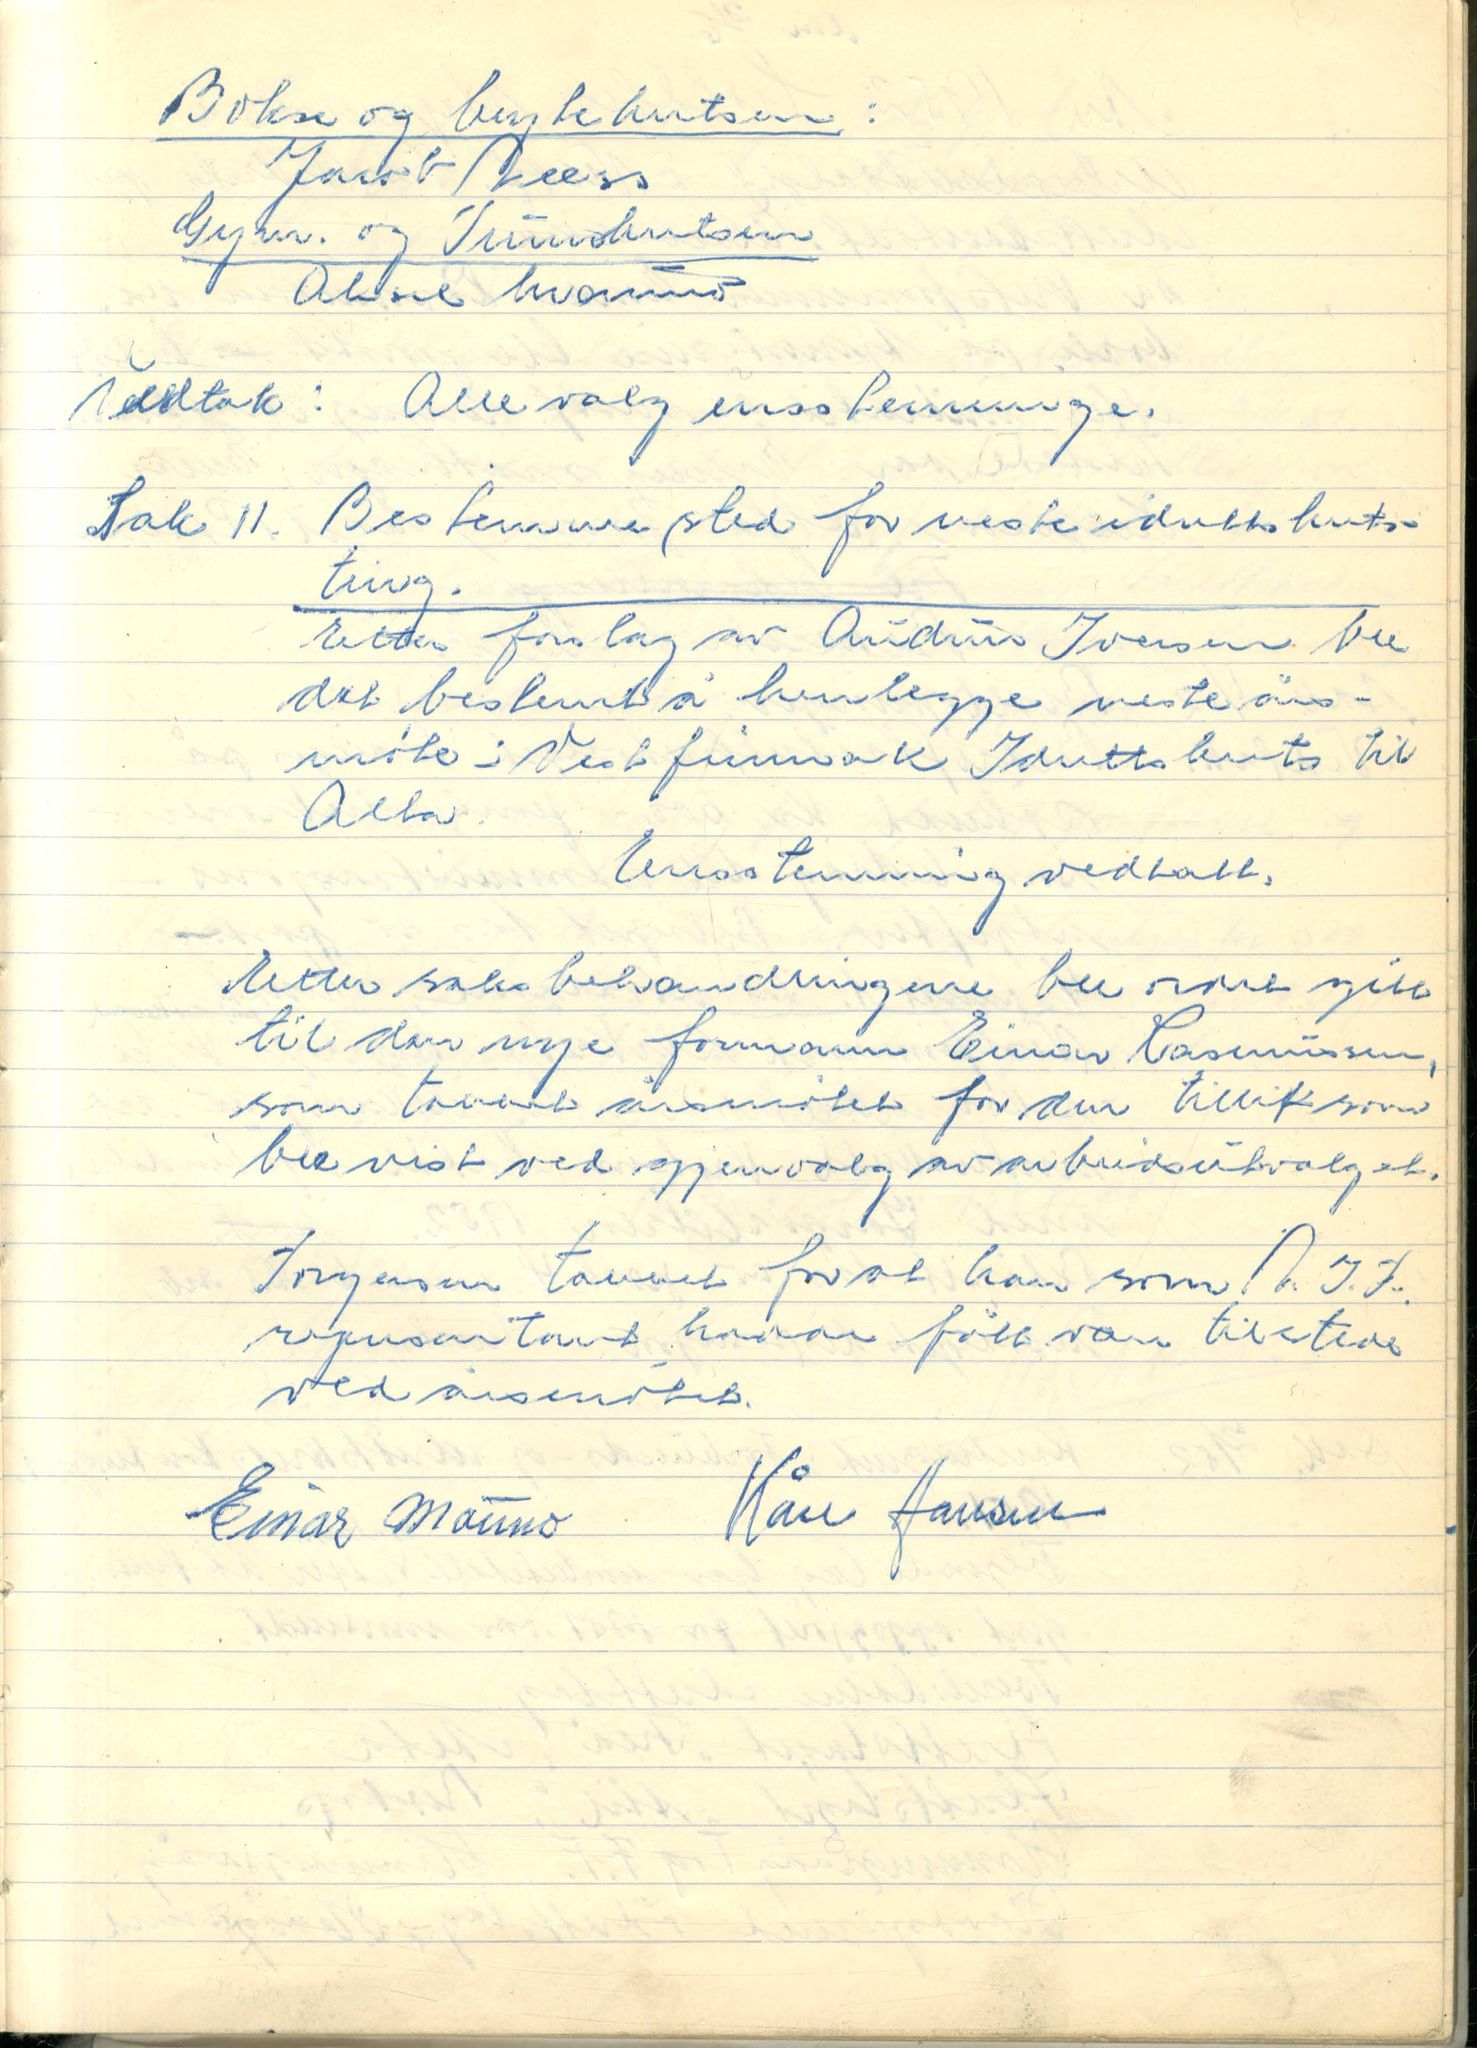 Bokse og brytekretsen:
Jacob Ness
Gym. og Turnkretsen
Aksel
Vedtak: Alle valg enstemmige.
Sak 11. Bestemme sted for neste idrettskrets-
ting.
Etter forslag av Andreas Iversen ble
det bestemt å henlegge neste års-
møte i Vestfinmark Idrettskrets til
Alta.
Ensstemmig vedtatt.
Etter saksbehandlingene ble ordet gitt
til den nye formann Einar Rasmussen,
som takket årsmøtet for den tillit som
ble vist ved gjenvalg av arbeidsutvalget.
Torgersen takket for at han som N.I.F.
representant hadde fått være tilstede
ved årsmøtet.
Einar Mauno Kåre Hansen